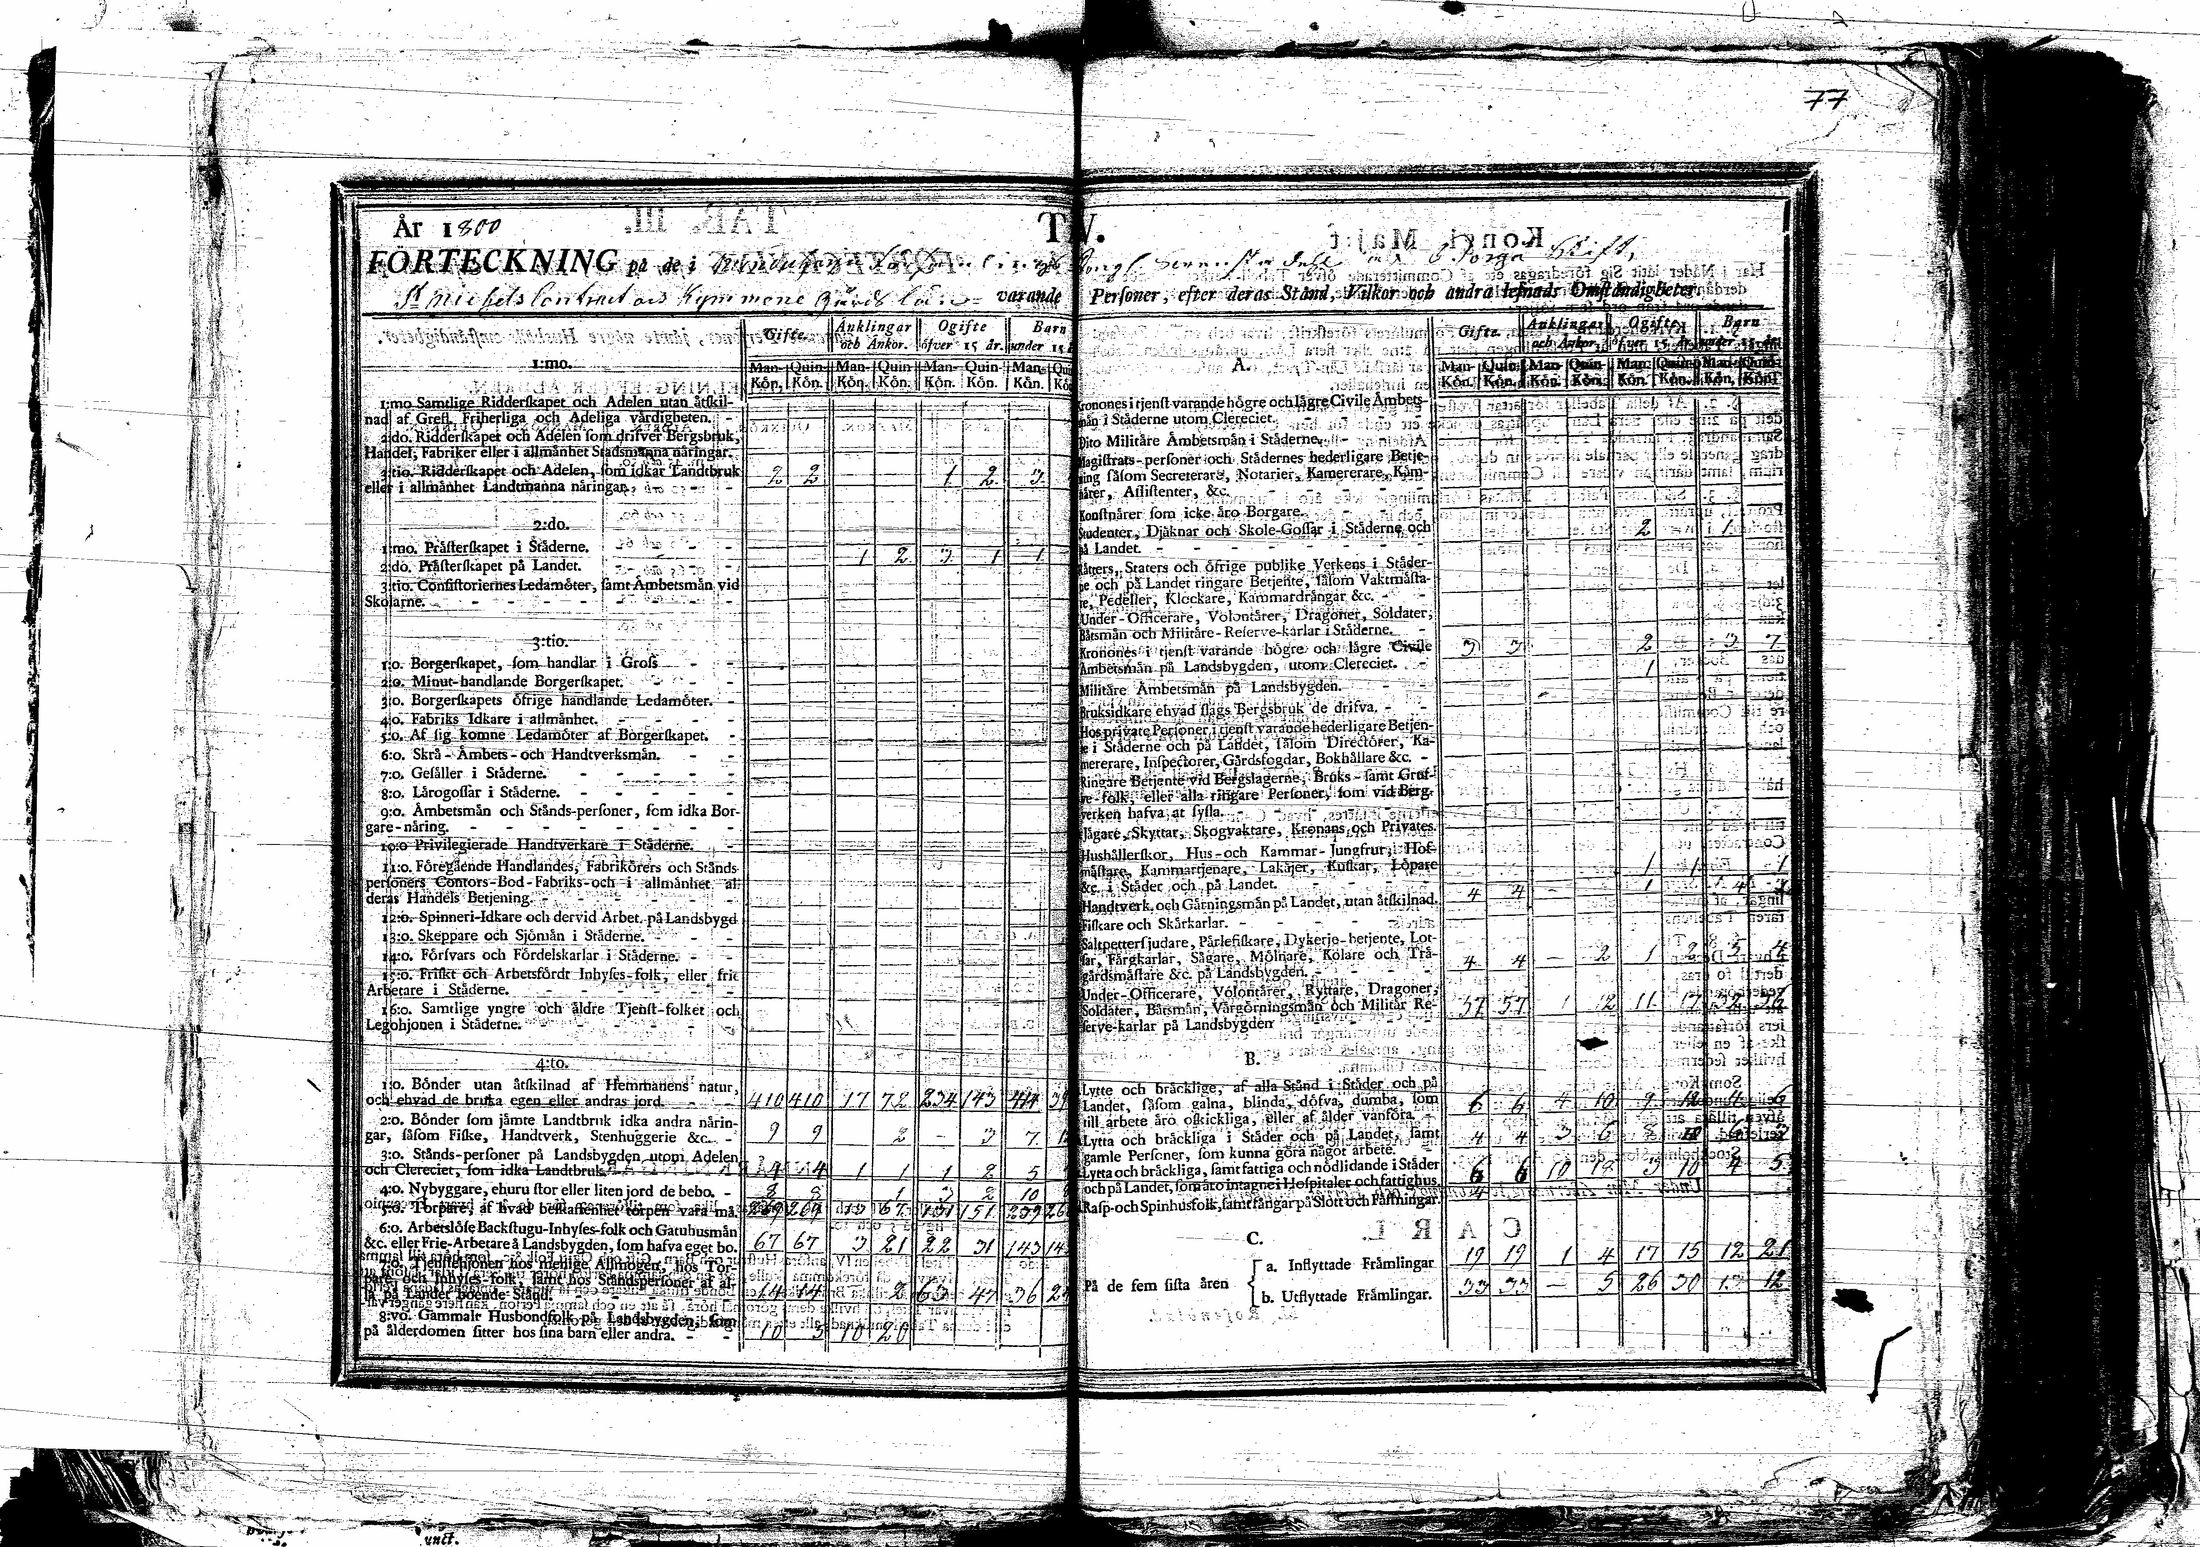 77
År 1800
T IV.
FÖRTECKNING på de i Borgå Stift,
St Michels Contract och Kymmene gårds län varande Personer, efter deras Stånd, Vilkor och andra lefnads Omståndigheter.
Gifte. Änklingar och Änkor. Ogifte öfver 15 år. Barn under 15
Man-Kön. Quin-Kön. Man-Kön. Quin-Kön. Man-Kön. Quin-Kön. Man-Kön.
1:mo.
1:mo Samtlige Ridderskapet och Adelen utan åtskil-
nad af Grefl. Friherliga och Adeliga vårdigheten.
2:do. Ridderskapet och Adelen som drifver Bergsbruk,
Handel, Fabriker eller i allmånhet Stadsmanna nåringar.
3:tio. Ridderskapet och Adelen, som idkar Landtbruk
eller i allmånhet Landtmanna nåringar. 2 2 1 2 3
2:do.
1:mo. Pråsterskapet i Ståderne.
2:do. Pråsterskapet på Landet. 1 2 3 1 1
3:tio. Consistoriernes Ledamôter, samt Åmbetsmån vid
Skolarne.
3:tio.
1:o. Borgerskapet, som handlar i Gross
2:o. Minut-handlande Borgerskapet.
3:o. Borgerskapets ôfrige handlande Ledamôter.
4:o. Fabriks Idkare i allmånhet.
5:o. Af sig komne Ledamôter af Borgerskapet.
6:o. Skrå-Åmbets-och Handtverksmån.
7:o. Gesåller i Ståderne.
8:o. Lårogossar i Ståderne.
9:o. Åmbetsmån och Stånds-personer, som idka Bor-
gare-nåring.
10:o Privilegierade Handtverkare i Ståderne.
11:o. Fôregående Handlandes, Fabrikôrers och Stånds
personers Contors-Bod-Fabriks-och i allmånhet al
deras Handels Betjening.
12:o. Spinneri-Idkare och dervid Arbet. på Landsbygd
13:o. Skeppare och Sjômån i Ståderne.
14:o. Fôrsvars och Fôrdelskarlar i Ståderne.
15:o. Friskt och Arbetsfôrdt Inhyses-folk, eller frie
Arbetare i Ståderne.
16:o. Samtlige yngre och åldre Tjenst-folket och
Legohjonen i Ståderne.
4:to.
1:o. Bônder utan åtskilnad af Hemmanens natur,
och ehvad de bruka egen eller andras jord. 410 410 17 72 234 143 414
2:o. Bônder som jåmte Landtbruk idka andra nårin-
gar, såsom Fiske, Handtverk, Stenhuggerie &c. 9 9 2 - 3 7
3:o. Stånds-personer på Landsbygden utom Adelen
och Clereciet, som idka Landtbruk. 4 4 1 1 1 2 5
4:o. Nybyggare, ehuru stor eller liten jord de bebo. 8 8 1 3 2 10
5:o. Torpare, af hvad beskaffenhet torpen vara må. 269 269 13 67 131 151 239
6:o. Arbetslôse Backstugu-Inhyses-folk och Gatuhusmån
&c. eller Frie-Arbetare å Landsbygden, som hafva eget bo. 67 67 3 21 22 31 143
7:o. Tjenstehjonen hos menige Allmogen, hos Tor-
pare, och Inhyses-folk, samt hos Ståndspersoner af al-
la på Landet boende Stånd. 14 14 2 63 47 36
8:vo. Gammalt Husbondfolk på Landsbygden, som
på ålderdomen sitter hos sina barn eller andra. 10 3 10 20
Gifte. Änklingar och Änkor. Ogifte öfver 15 år. Barn under 15 år.
Man-Kön. Quin-Kön. Man-Kön. Quin-Kön. Man-Kön. Quin-Kön. Man-Kön. Quin-Kön.
A.
Kronones i tjenst varande hôgre och lågre Civile Åmbets-
mån i Ståderne utom Clereciet.
Dito Militåre Åmbetsmån i Ståderne.
Magistrats-personer och Stådernes hederligare Betje-
ning såsom Secreterare, Notarier, Kamererare, Kåm-
nårer, Assistenter, &c.
Konstnårer som icke åro Borgare.
Studenter, Djåknar och Skole-Gossar i Ståderne och
på Landet. 2 1
Råtters, Staters och ôfrige publike Verkens i Ståder-
ne och på Landet ringare Betjente, såsom Vaktmåsta-
re, Pedeller, Klockare, Kammardrångar &c.
Under-Officerare, Volontårer, Dragoner, Soldater,
Båtsmån och Militåre-Reserve-karlar i Ståderne.
Kronones i tjenst varande hôgre och lågre Civile
Åmbetsmån på Landsbygden, utom Clereciet. 3 3 2 3 7
Militåre Åmbetsmån på Landsbygden. 1
Bruksidkare ehvad slags Bergsbruk de drifva.
Hos private Personer i tjenst varande hederligare Betjen-
te i Ståderne och på Landet, såsom Directôrer, Ka-
mererare, Inspectorer, Gårdsfogdar, Bokhållare &c.
Ringare Betjente vid Bergslagerne, Bruks-samt Gruf-
ve-folk, eller alla ringare Personer, som vid Berg-
verken hafva at sysla.
Jågare, Skyttar, Skogvaktare, Kronans och Privates.
Hushållerskor, Hus-och Kammar-Jungfrur, Hof-
måstare, Kammartjenare, Lakåjer, Kuskar, Lôpare
&c. i Ståder och på Landet. 1 1 1
Handtverk och Gårningsmån på Landet, utan åtskilnad. 4 4 - 1 4
Fiskare och Skårkarlar.
Saltpettersjudare, Pårlefiskare, Dykerie-betjente, Lot-
sar, Fårgkarlar, Sågare, Môlnare, Kolare och Trå-
gårdsmåstare &c. på Landsbygden. 4 4 - 2 1 2 3 4
Under-Officerare, Volontårer, Ryttare, Dragoner,
Soldater, Båtsmån, Vårgôrningsmån och Militår Re-
serve-karlar på Landsbygden 57 57 1 12 11 17 32 36
B.
Lytte och bråcklige, af alla Stånd i Ståder och på
Landet, såsom galna, blinda, dôfva, dumba, som
till arbete åro oskickliga, eller af ålder vanfôra. 6 6 4 10 9 12 4 6
Lytta och bråckliga i Ståder och på Landet, samt
gamle Personer, som kunna gôra något arbete. 4 4 3 6 8 10 6 3
Lytta och bråckliga, samt fattiga och nôdlidande i Ståder
och på Landet, som åro intagne i Hospitaler och fattighus. 6 6 10 18 3 10 4 5
Rasp-och Spinhusfolk, samt fångar på Slott och Fåstningar.
C.
På de fem sista åren
a. Inflyttade Fråmlingar 19 19 1 4 17 15 12 21
b. Utflyttade Fråmlingar. 33 33 - 5 26 30 13 12